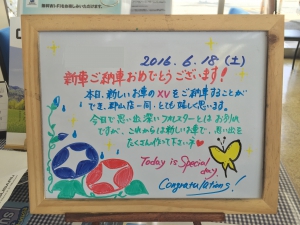 2016.6.18(土)
新車ご納車おめでとうございます！
本日、新しいお車のXVをご納車することが
でき、郡山店一同、とても嬉しく思います。
今日で思い出深いフォレスターとはお別れ
ですが、これからは新しいお車で、思い出を
たくさん作って下さいネ♥
Today is Special
day.
Congratulations!